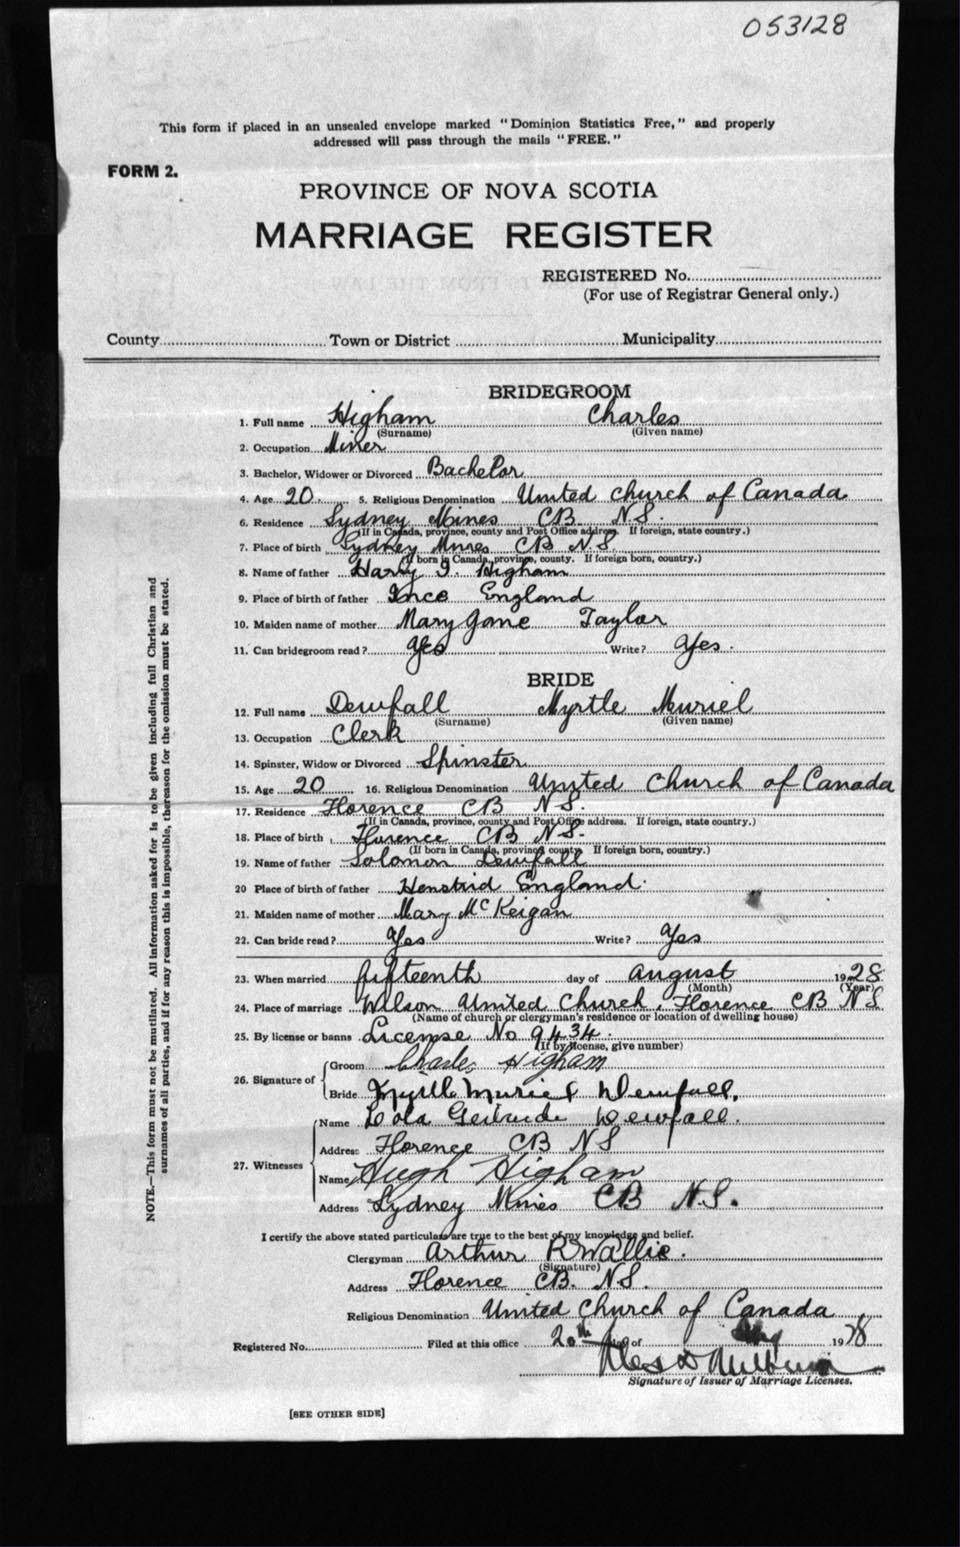 053128
This form if placed in an unsealed envelope marked "Dominion Statistics Free," and properly
addressed will pass through the mails "FREE."
FORM 2.
PROVINCE OF NOVA SCOTIA
MARRIAGE REGISTER
REGISTERED No.
(For use of Registrar General only.)
County Town or District Municipality
BRIDEGROOM
1. Full name Higham Charles
(Surname) (Given name)
2. Occupation Miner
3. Bachelor, Widower or Divorced Bachelor
4. Age 20 5. Religious Denomination United Church of Canada
6. Residence Sydney Mines CB. N.S.
(If in Canada, province, county and Post Office address. If foreign, state country.)
7. Place of birth Sydney Mines CB N.S.
(If born in Canada, province, county. If foreign born, country.)
8. Name of father Harry I. Higham
9. Place of birth of father Ince England
10. Maiden name of mother Mary Jane Taylor
11. Can bridegroom read? Yes Write? Yes.
BRIDE
12. Full name Dewfall Myrtle Muriel
(Surname) (Given name)
13. Occupation Clerk
14. Spinster, Widow or Divorced Spinster
15. Age 20 16. Religious Denomination United Church of Canada
17. Residence Florence CB N.S.
(If in Canada, province, county and Post Office address. If foreign, state country.)
18. Place of birth Florence CB N.S.
(If born in Canada, province, county. If foreign born, country.)
19. Name of father Solomon Dewfall
20 Place of birth of father Henstrid England.
21. Maiden name of mother Mary McKeigan
22. Can bride read? Yes Write? Yes
23. When married fifteenth day of August 1928
(Month) (Year)
24. Place of marriage Wilson United Church, Florence CB N S
(Name of church or clergyman's residence or location of dwelling house)
25. By license or banns License No 9434.
(If by license, give number)
26. Signature of
Groom Charles Higham
Bride Myrtle Muriel Dewfall.
27. Witnesses
Name Lola Gertrude Dewfall.
Address Florence CB N S
Name Hugh Higham
Address Sydney Mines CB N.S.
I certify the above stated particulars are true to the best of my knowledge and belief.
Clergyman Arthur R Wallis.
(Signature)
Address Florence CB. N.S.
Religious Denomination United Church of Canada
Registered No. Filed at this office 20th day of Aug 1928
Signature of Issuer of Marriage Licenses.
[SEE OTHER SIDE]
NOTE.—This form must not be mutilated. All information asked for is to be given including full Christian and
surnames of all parties, and if for any reason this is impossible, the reason for the omission must be stated.